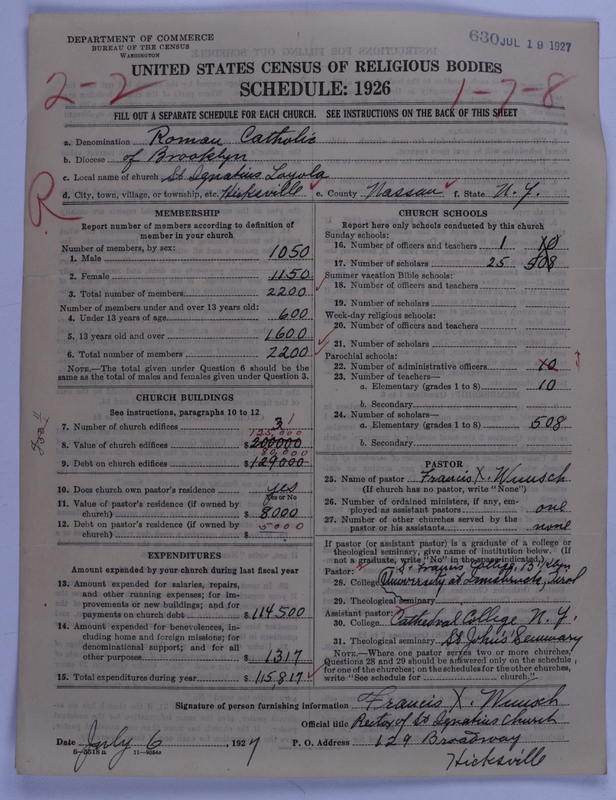 DEPARTMENT OF COMMERCE
BUREAU OF THE CENSUS
WASHINGTON
630 JUL 19 1927
UNITED STATES CENSUS OF RELIGIOUS BODIES
SCHEDULE: 1926
2-2
1-7-8
FILL OUT A SEPARATE SCHEDULE FOR EACH CHURCH. SEE INSTRUCTIONS ON THE BACK OF THIS SHEET
a. Denomination Roman Catholic
b. Diocese of Brooklyn
c. Local name of church St Ignatius Loyola
d. City, town, village, or township, etc. Hicksville e. County Nassau f. State N.Y.
R
MEMBERSHIP
Report number of members according to definition of
member in your church
Number of members, by sex:
1. Male 1050
2. Female 1150
3. Total number of members 2200
Number of members under and over 13 years old:
4. Under 13 years of age 600
5. 13 years old and over 1600
6. Total number of members 2200
NOTE.—The total given under Question 6 should be the
same as the total of males and females given under Question 3.
CHURCH BUILDINGS
See instructions, paragraphs 10 to 12
7. Number of church edifices 3 1
125,000
8. Value of church edifices $ 200000
80,000
9. Debt on church edifices $ 129000
10. Does church own pastor's residence yes
Yes or No
11. Value of pastor's residence (if owned by
church) $ 8000
12. Debt on pastor's residence (if owned by 5000
church) $
EXPENDITURES
Amount expended by your church during last fiscal year
13. Amount expended for salaries, repairs,
and other running expenses; for im-
provements or new buildings; and for
payments on church debt $ 114500
14. Amount expended for benevolences, in-
cluding home and foreign missions; for
denominational support; and for all
other purposes $ 1317
15. Total expenditures during year $ 115,817
CHURCH SCHOOLS
Report here only schools conducted by this church
Sunday schools:
16. Number of officers and teachers 1 10
17. Number of scholars 25 508
Summer vacation Bible schools:
18. Number of officers and teachers
19. Number of scholars
Week-day religious schools:
20. Number of officers and teachers
21. Number of scholars
Parochial schools:
22. Number of administrative officers 10
23. Number of teachers—
a. Elementary (grades 1 to 8) 10
b. Secondary
24. Number of scholars—
a. Elementary (grades 1 to 8) 508
b. Secondary
PASTOR
25. Name of pastor Francis X. Wunsch
(If church has no pastor, write "None")
26. Number of ordained ministers, if any, em-
ployed as assistant pastors one
27. Number of other churches served by the
pastor or his assistants none
If pastor (or assistant pastor) is a graduate of a college or
theological seminary, give name of institution below. (If
not a graduate, write "No" in the space indicated.)
Pastor: St Francis College, B'klyn
28. College University at Innsbruck, Tirol
29. Theological seminary
Assistant pastor:
30. College Cathedral College N.Y.
31. Theological seminary St John's Seminary
NOTE.—Where one pastor serves two or more churches,
Questions 28 and 29 should be answered only on the schedule
for one of the churches; on the schedules for the other churches,
write "See schedule for church."
Signature of person furnishing information Francis X. Wunsch
Official title Rector of St Ignatius Church
Date July 6, 1927 P. O. Address 129 Broadway
Hicksville